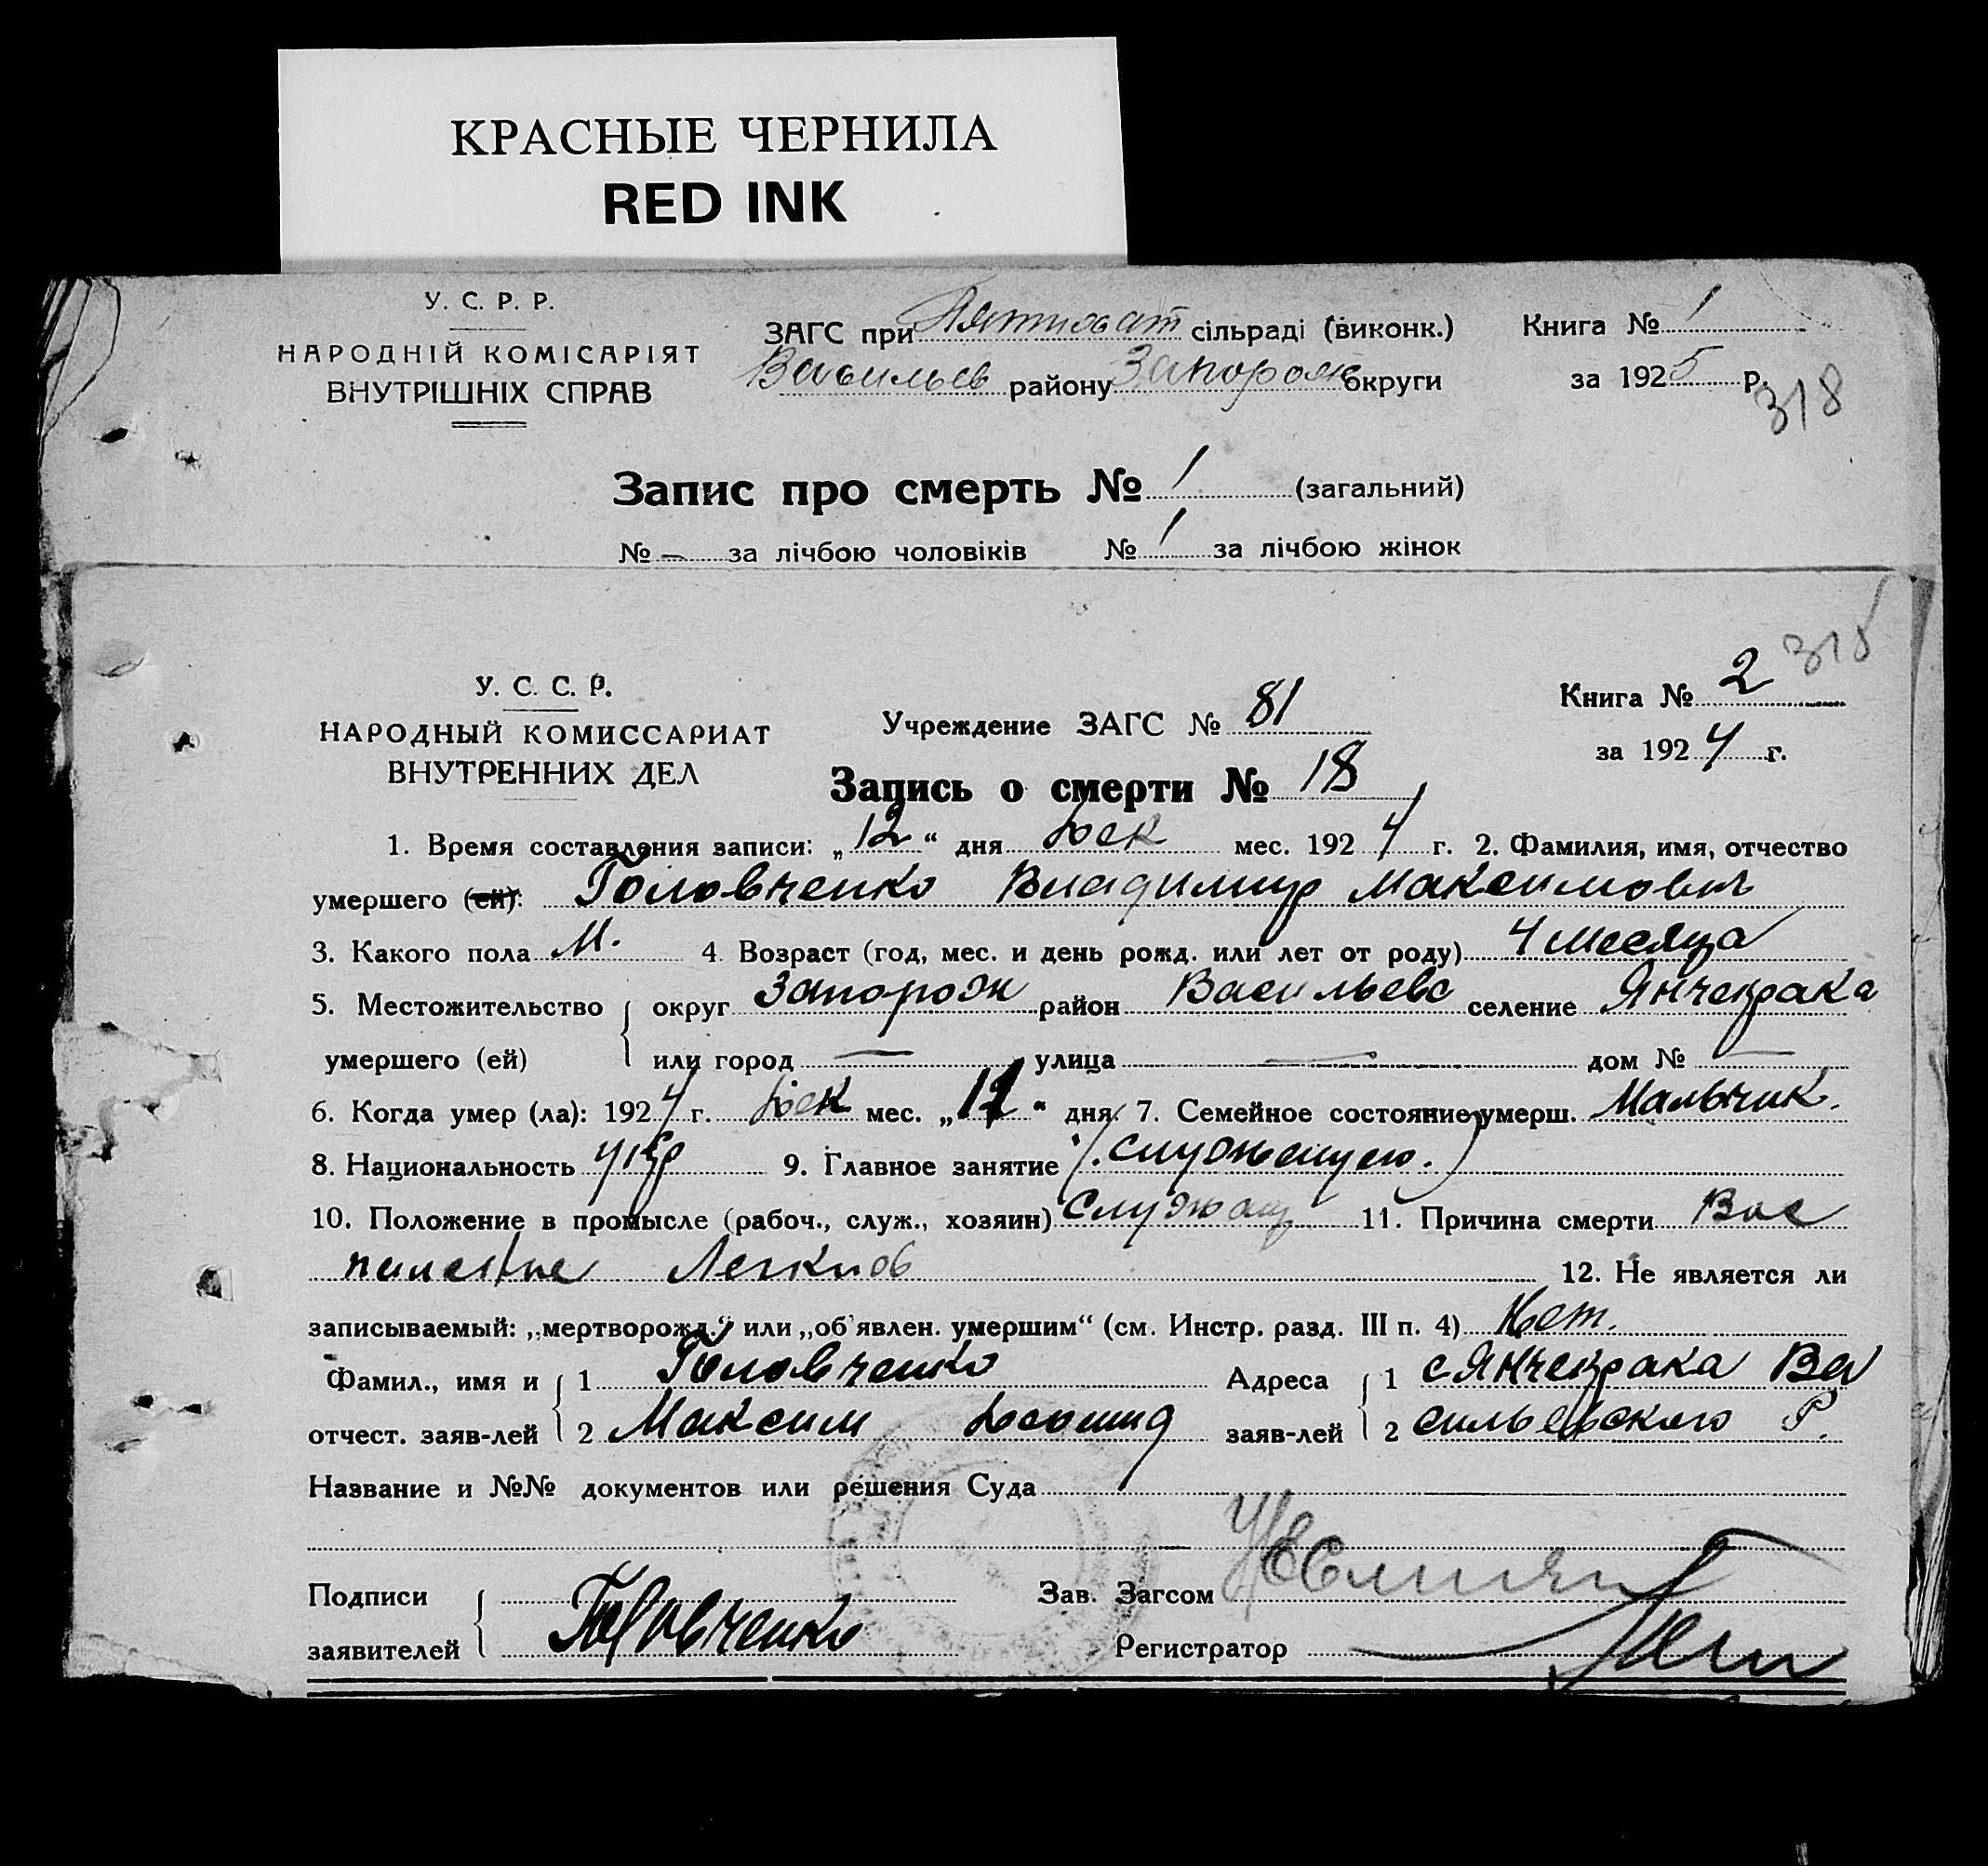 КРАСНЫЕ ЧЕРНИЛА
RED INK
У. С. Р. Р.
НАРОДНІЙ КОМІСАРІЯТ
ВНУТРІШНІХ СПРАВ
ЗАГС при сільраді (виконк.) Книга № 1
Васильев району Запорож округи за 1925 р.
318
Запис про смерть № 1 (загальний)
№ — за лічбою чоловіків № 1 за лічбою жінок
У. С. С. Р.
НАРОДНЫЙ КОМИССАРИАТ
ВНУТРЕННИХ ДЕЛ
Учреждение ЗАГС № 81
Книга № 2
за 1924 г.
Запись о смерти № 18
1. Время составления записи: „12“ дня Дек мес. 1924 г. 2. Фамилия, имя, отчество
умершего (ей): Головченко Владимир Максимович
3. Какого пола М. 4. Возраст (год, мес. и день рожд. или лет от роду) 4 месяца
5. Местожительство округ Запорож район Васильевс селение Янчекрака
умершего (ей) или город — улица — дом № —
6. Когда умер (ла): 1924 г. Дек мес. „ “ дня 7. Семейное состояние умерш. Мальчик.
8. Национальность укр 9. Главное занятие (служащего.)
10. Положение в промысле (рабоч., служ., хозяин) Служащ 11. Причина смерти Вос
паление Легков 12. Не является ли
записываемый: „мертворожд.“ или „об'явлен. умершим“ (см. Инстр. разд. III п. 4) Нет.
Фамил., имя и 1 Головченко Адреса 1 с Янчекрака Ва
отчест. заяв-лей 2 Максим заяв-лей 2 сильевского Р.
Название и №№ документов или решения Суда
Подписи
заявителей Головченко
Зав. Загсом
Регистратор